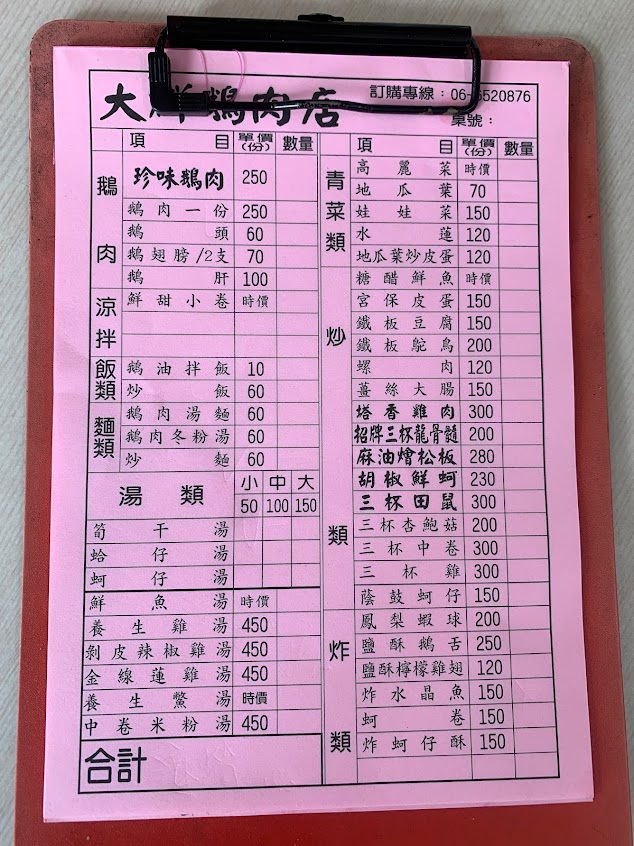 大 鵝肉店
訂購專線：06- 520876
桌號：
項 目 單價(份) 數量
鵝肉
珍味鵝肉 250
鵝肉一份 250
鵝頭 60
鵝翅膀/2支 70
鵝肝 100
涼拌
鮮甜小卷 時價
飯類
鵝油拌飯 10
炒飯 60
麵類
鵝肉湯麵 60
鵝肉冬粉湯 60
炒麵 60
湯類 小 中 大
50 100 150
筍干湯
蛤仔湯
蚵仔湯
鮮魚湯 時價
養生雞湯 450
剝皮辣椒雞湯 450
金線蓮雞湯 450
養生鱉湯 時價
中卷米粉湯 450
合計
項 目 單價(份) 數量
青菜類
高麗菜 時價
地瓜葉 70
娃娃菜 150
水蓮 120
地瓜葉炒皮蛋 120
炒類
糖醋鮮魚 時價
宮保皮蛋 150
鐵板豆腐 150
鐵板鴕鳥 200
螺肉 120
薑絲大腸 150
塔香雞肉 300
招牌三杯龍骨髓 200
麻油燴松板 280
胡椒鮮蚵 230
三杯田鼠 300
三杯杏鮑菇 200
三杯中卷 300
三杯雞 300
蔭鼓蚵仔 150
炸類
鳳梨蝦球 200
鹽酥鵝舌 250
鹽酥檸檬雞翅 120
炸水晶魚 150
蚵卷 150
炸蚵仔酥 150